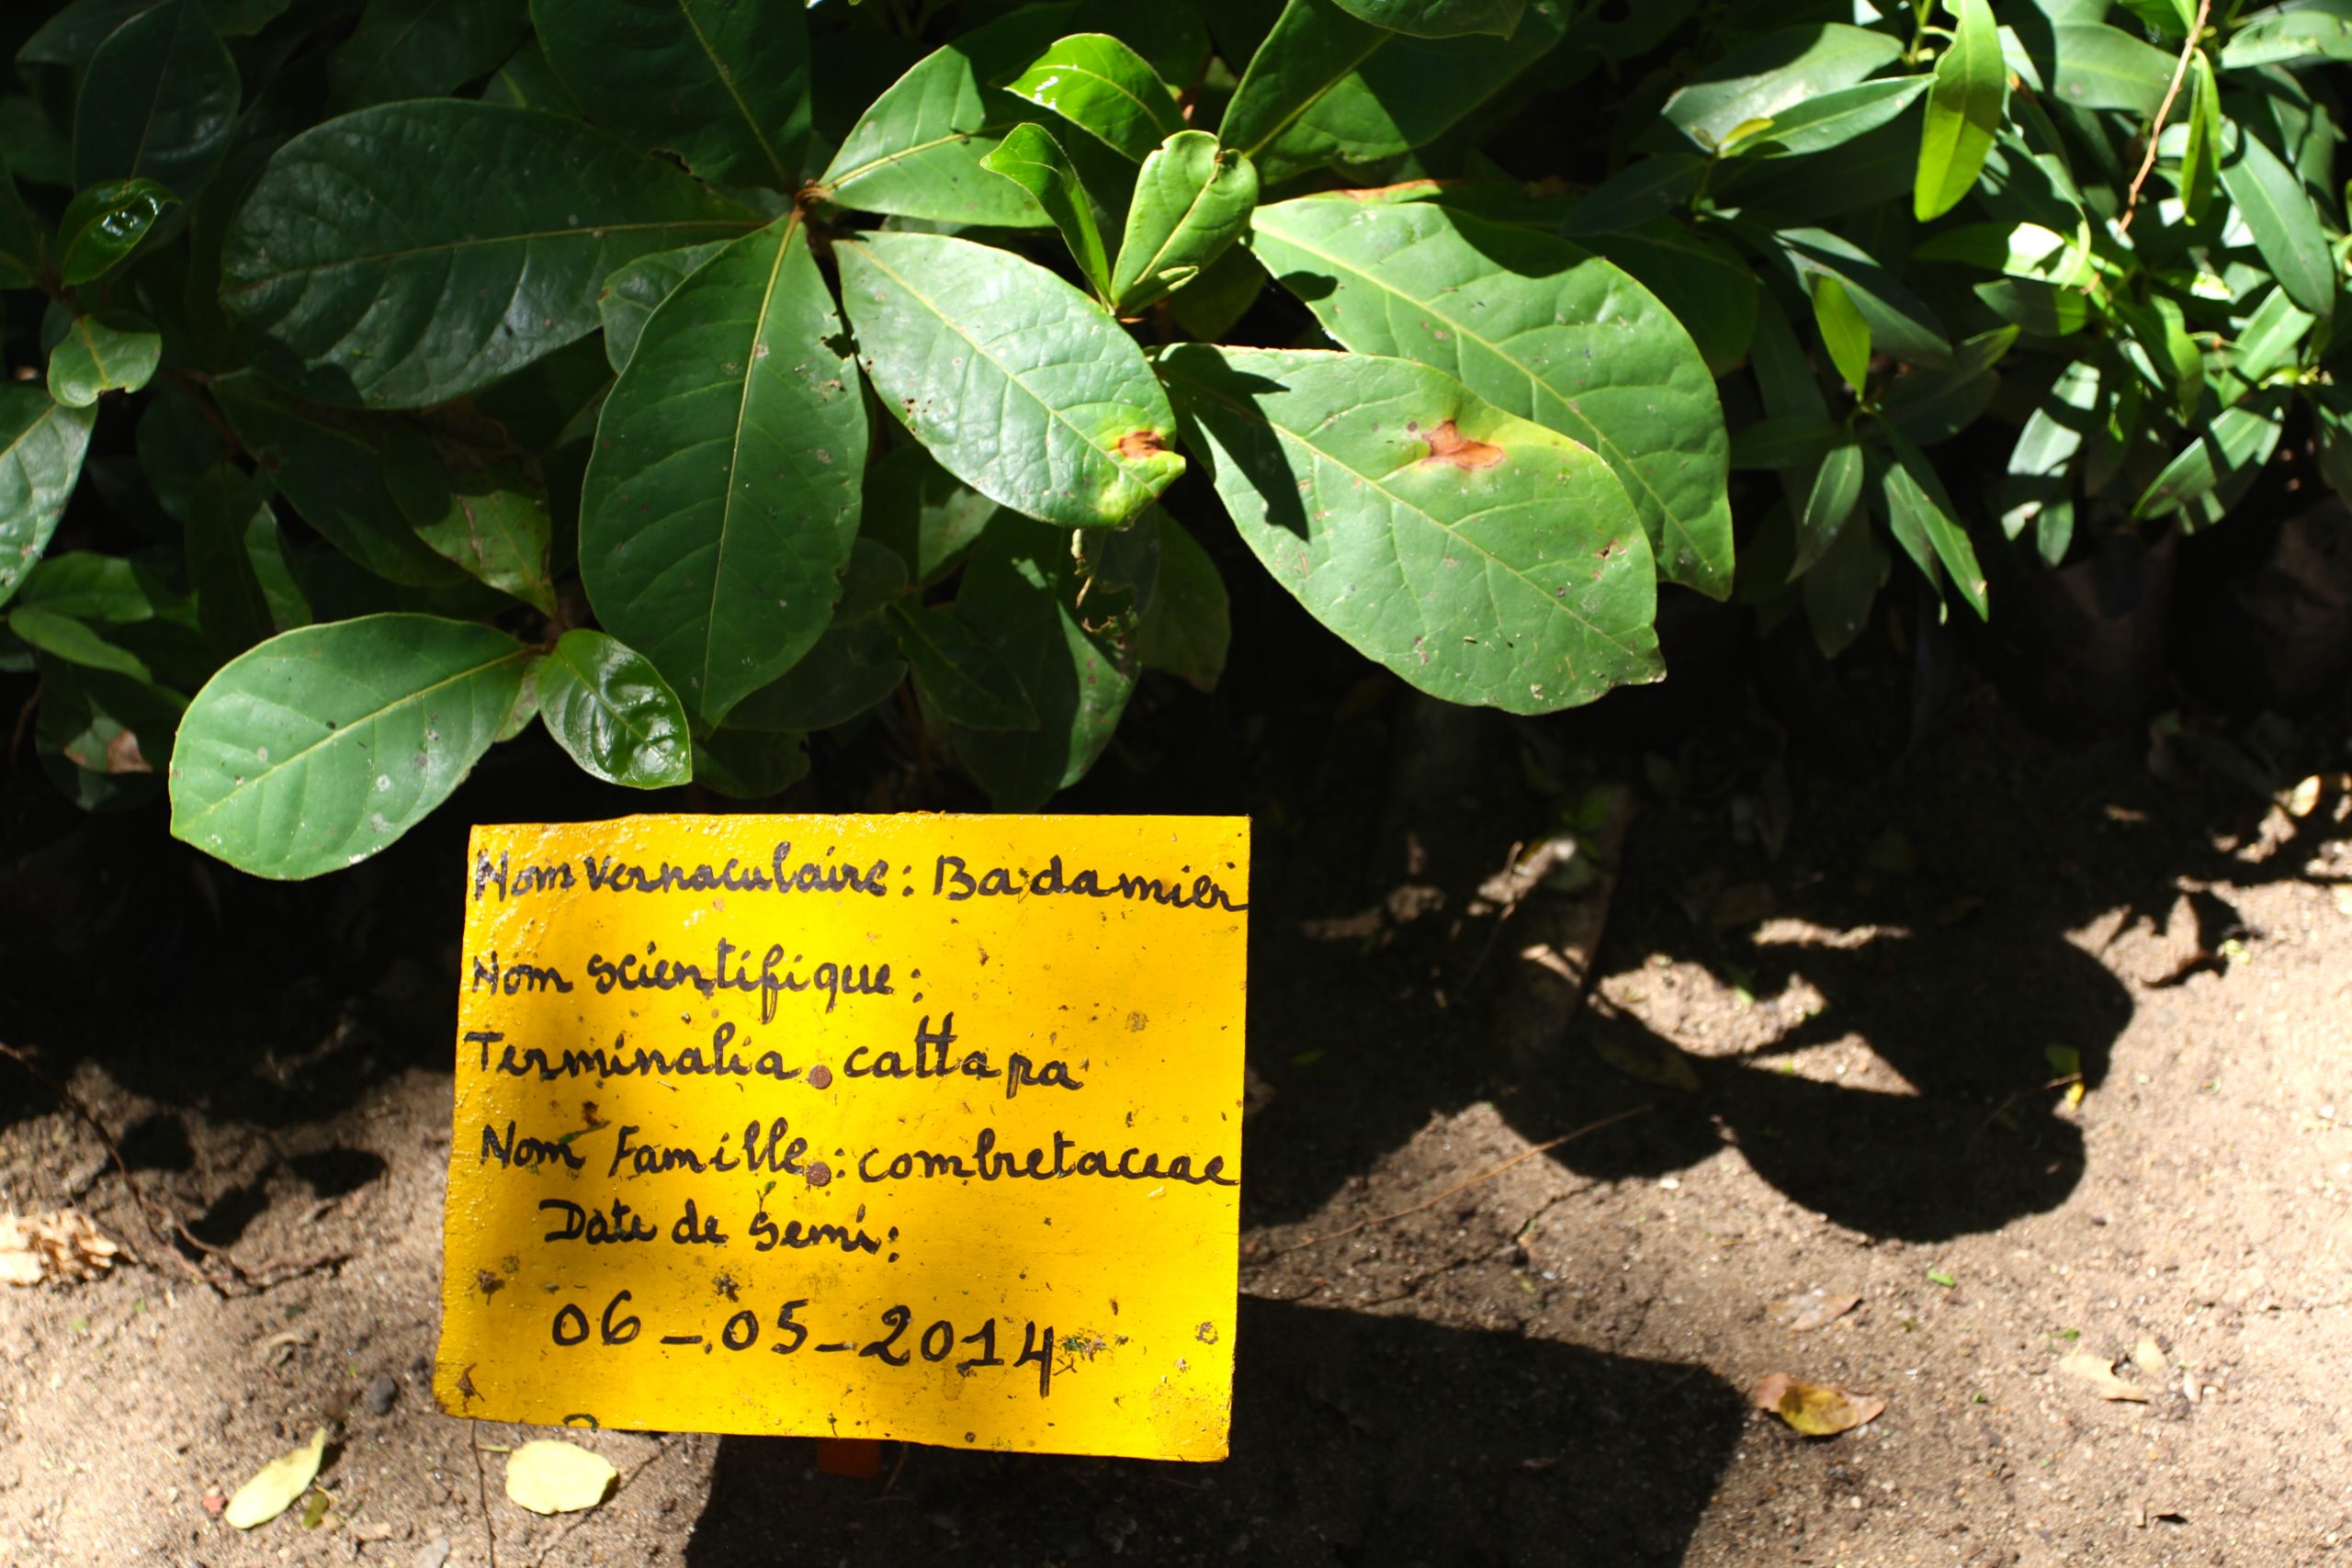 Nom Vernaculaire : Badamier
Nom scientifique :
Terminalia cattapa
Nom Famille : combretaceae
Date de Semi :
06-05-2014